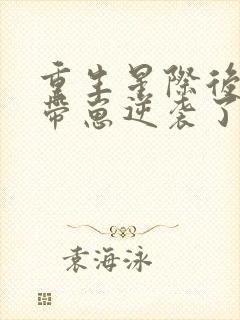 重生星際後
帶崽逆袭了
袁海泳